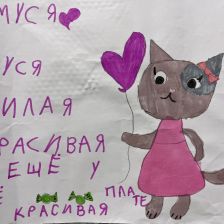 МУСЯ
УСЯ
ИЛАЯ
РАСИВАЯ
ЕЩЁ У
Е КРАСИВАЯ ПЛАТЕ